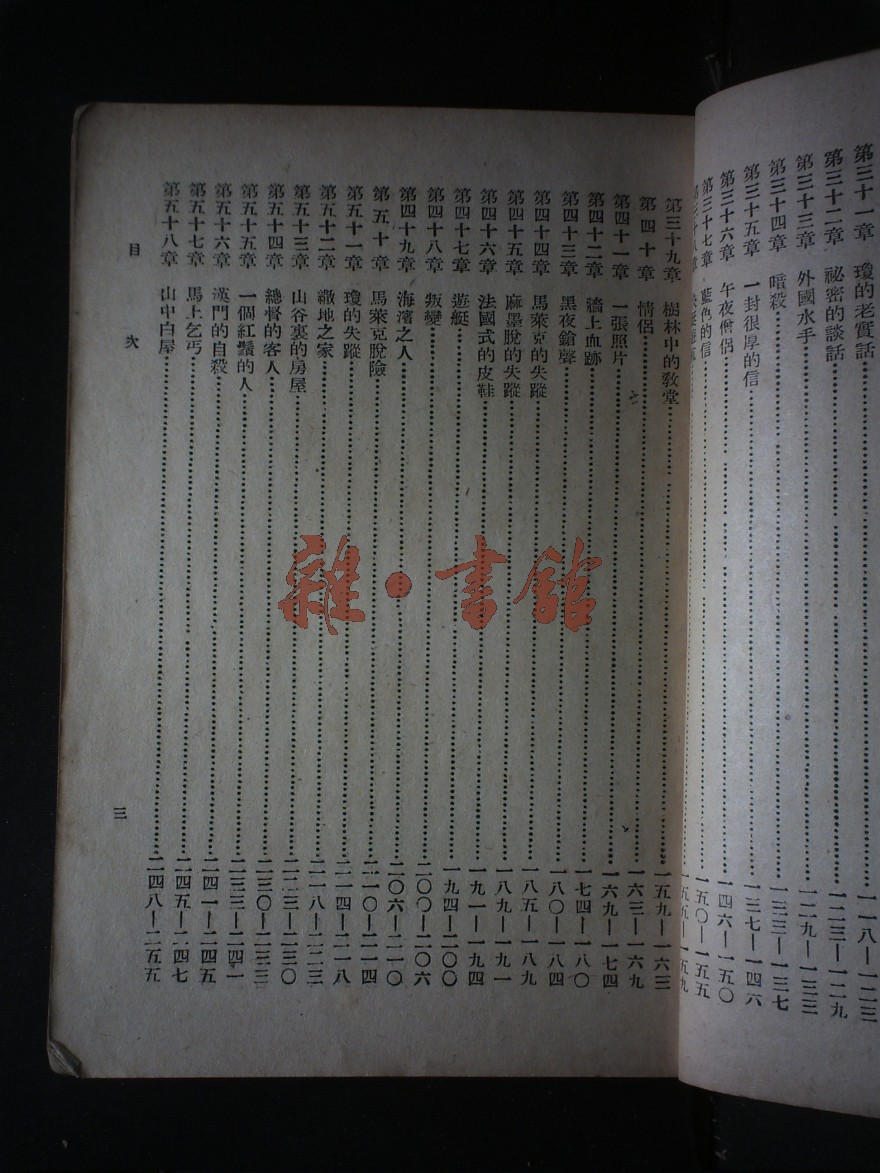 第三十一章 瓊的老實話 一一八—一二三
第三十二章 祕密的談話 一二三—一二九
第三十三章 外國水手 一二九—一三三
第三十四章 暗殺 一三三—一三七
第三十五章 一封很厚的信 一三七—一四六
第三十六章 午夜僧侶 一四六—一五〇
第三十七章 藍色的信 一五〇—一五五
第三十八章 一五五—一五九
第三十九章 樹林中的教堂 一五九—一六三
第四十章 情侶 一六三—一六九
第四十一章 一張照片 一六九—一七四
第四十二章 牆上血跡 一七四—一八〇
第四十三章 黑夜鎗聲 一八〇—一八四
第四十四章 馬萊克的失蹤 一八五—一八九
第四十五章 麻墨脫的失蹤 一八九—一九一
第四十六章 法國式的皮鞋 一九一—一九四
第四十七章 遊艇 一九四—二〇〇
第四十八章 叛變 二〇〇—二〇六
第四十九章 海濱之人 二〇六—二一〇
第五十章 馬萊克脫險 二一〇—二一四
第五十一章 瓊的失蹤 二一四—二一八
第五十二章 緻地之家 二一八—二二三
第五十三章 山谷裏的房屋 二二三—二三〇
第五十四章 總督的客人 二三〇—二三三
第五十五章 一個紅鬚的人 二三三—二四一
第五十六章 漢門的自殺 二四一—二四五
第五十七章 馬上乞丐 二四五—二四七
第五十八章 山中白屋 二四八—二五五
目次 三
雜·書館